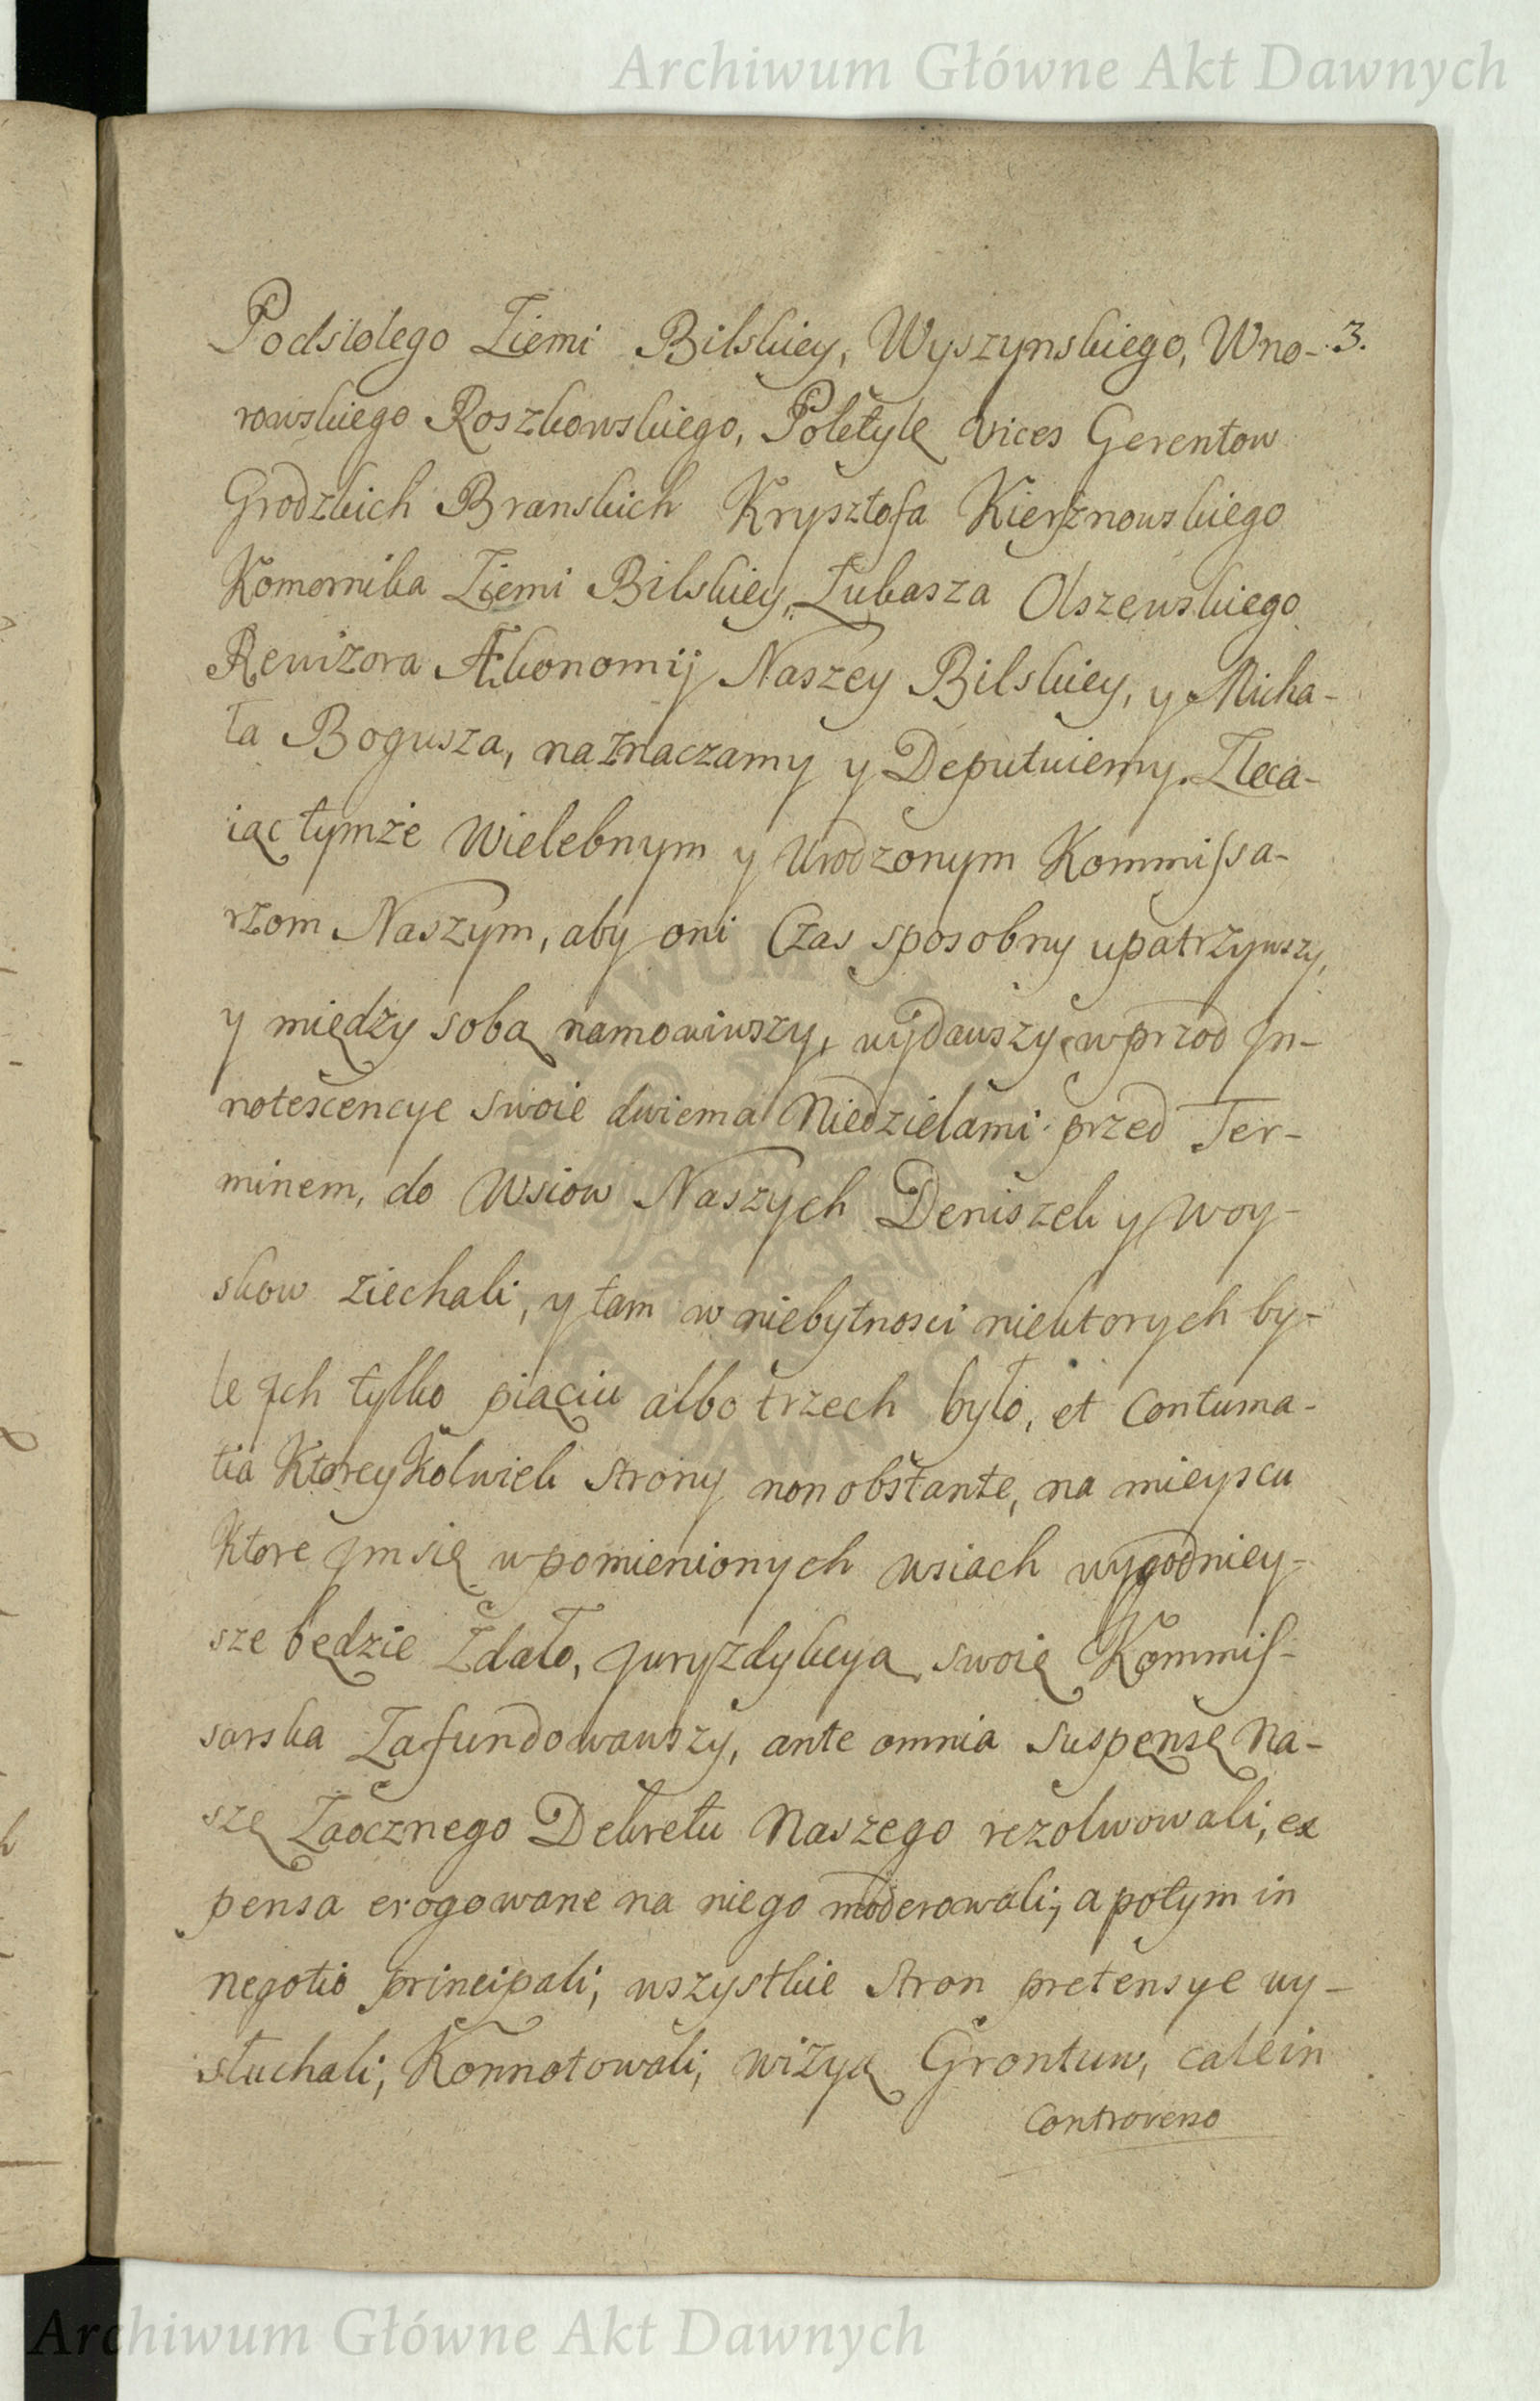 Archiwum Główne Akt Dawnych
3.
Podstolego Ziemi Bilskiey, Wyszynskiego, Wno-
rowskiego Roszkowskiego, Poletyłę vices Gerentow
Grodzkich Branskich Krysztofa Kierznowskiego
Komornika Ziemi Bilskiey, Łukasza Olszewskiego
Rewizora Ækonomij Naszey Bilskiey, y Micha-
ła Bogusza, naznaczamy y Deputuiemy. Zleca-
iąc tymże Wielebnym y Urodzonym Kommissa-
rzom Naszym, aby oni Czas sposobny upatrzywszy,
y między sobą namowiwszy, wydawszy wprzod In-
notescencye swoie dwiema Niedzielami przed Ter-
minem, do Wsiow Naszych Deniszek y Woy-
skow ziechali, y tam w niebytnosci niektorych by-
le Ich tylko piąciu albo trzech było, et Contuma-
tia Ktorey Kolwiek Strony non obstante, na mieyscu
Ktore Im się w pomienionych wsiach wygodniey-
sze będzie Zdało, Juryzdykcyą swoię Kommis-
sarska Zafundowawszy, ante omnia Suspensę Na-
szę Zaocznego Dekretu Naszego rezolwowali, ex
pensa erogowane na niego moderowali, a potym in
negotio principali, wszystkie Stron pretensye wy-
słuchali, Konnotowali, wizyą Grontuw, cale in
Controverso
ARCHIWUM GŁÓWNE AKT DAWNYCH
Archiwum Główne Akt Dawnych